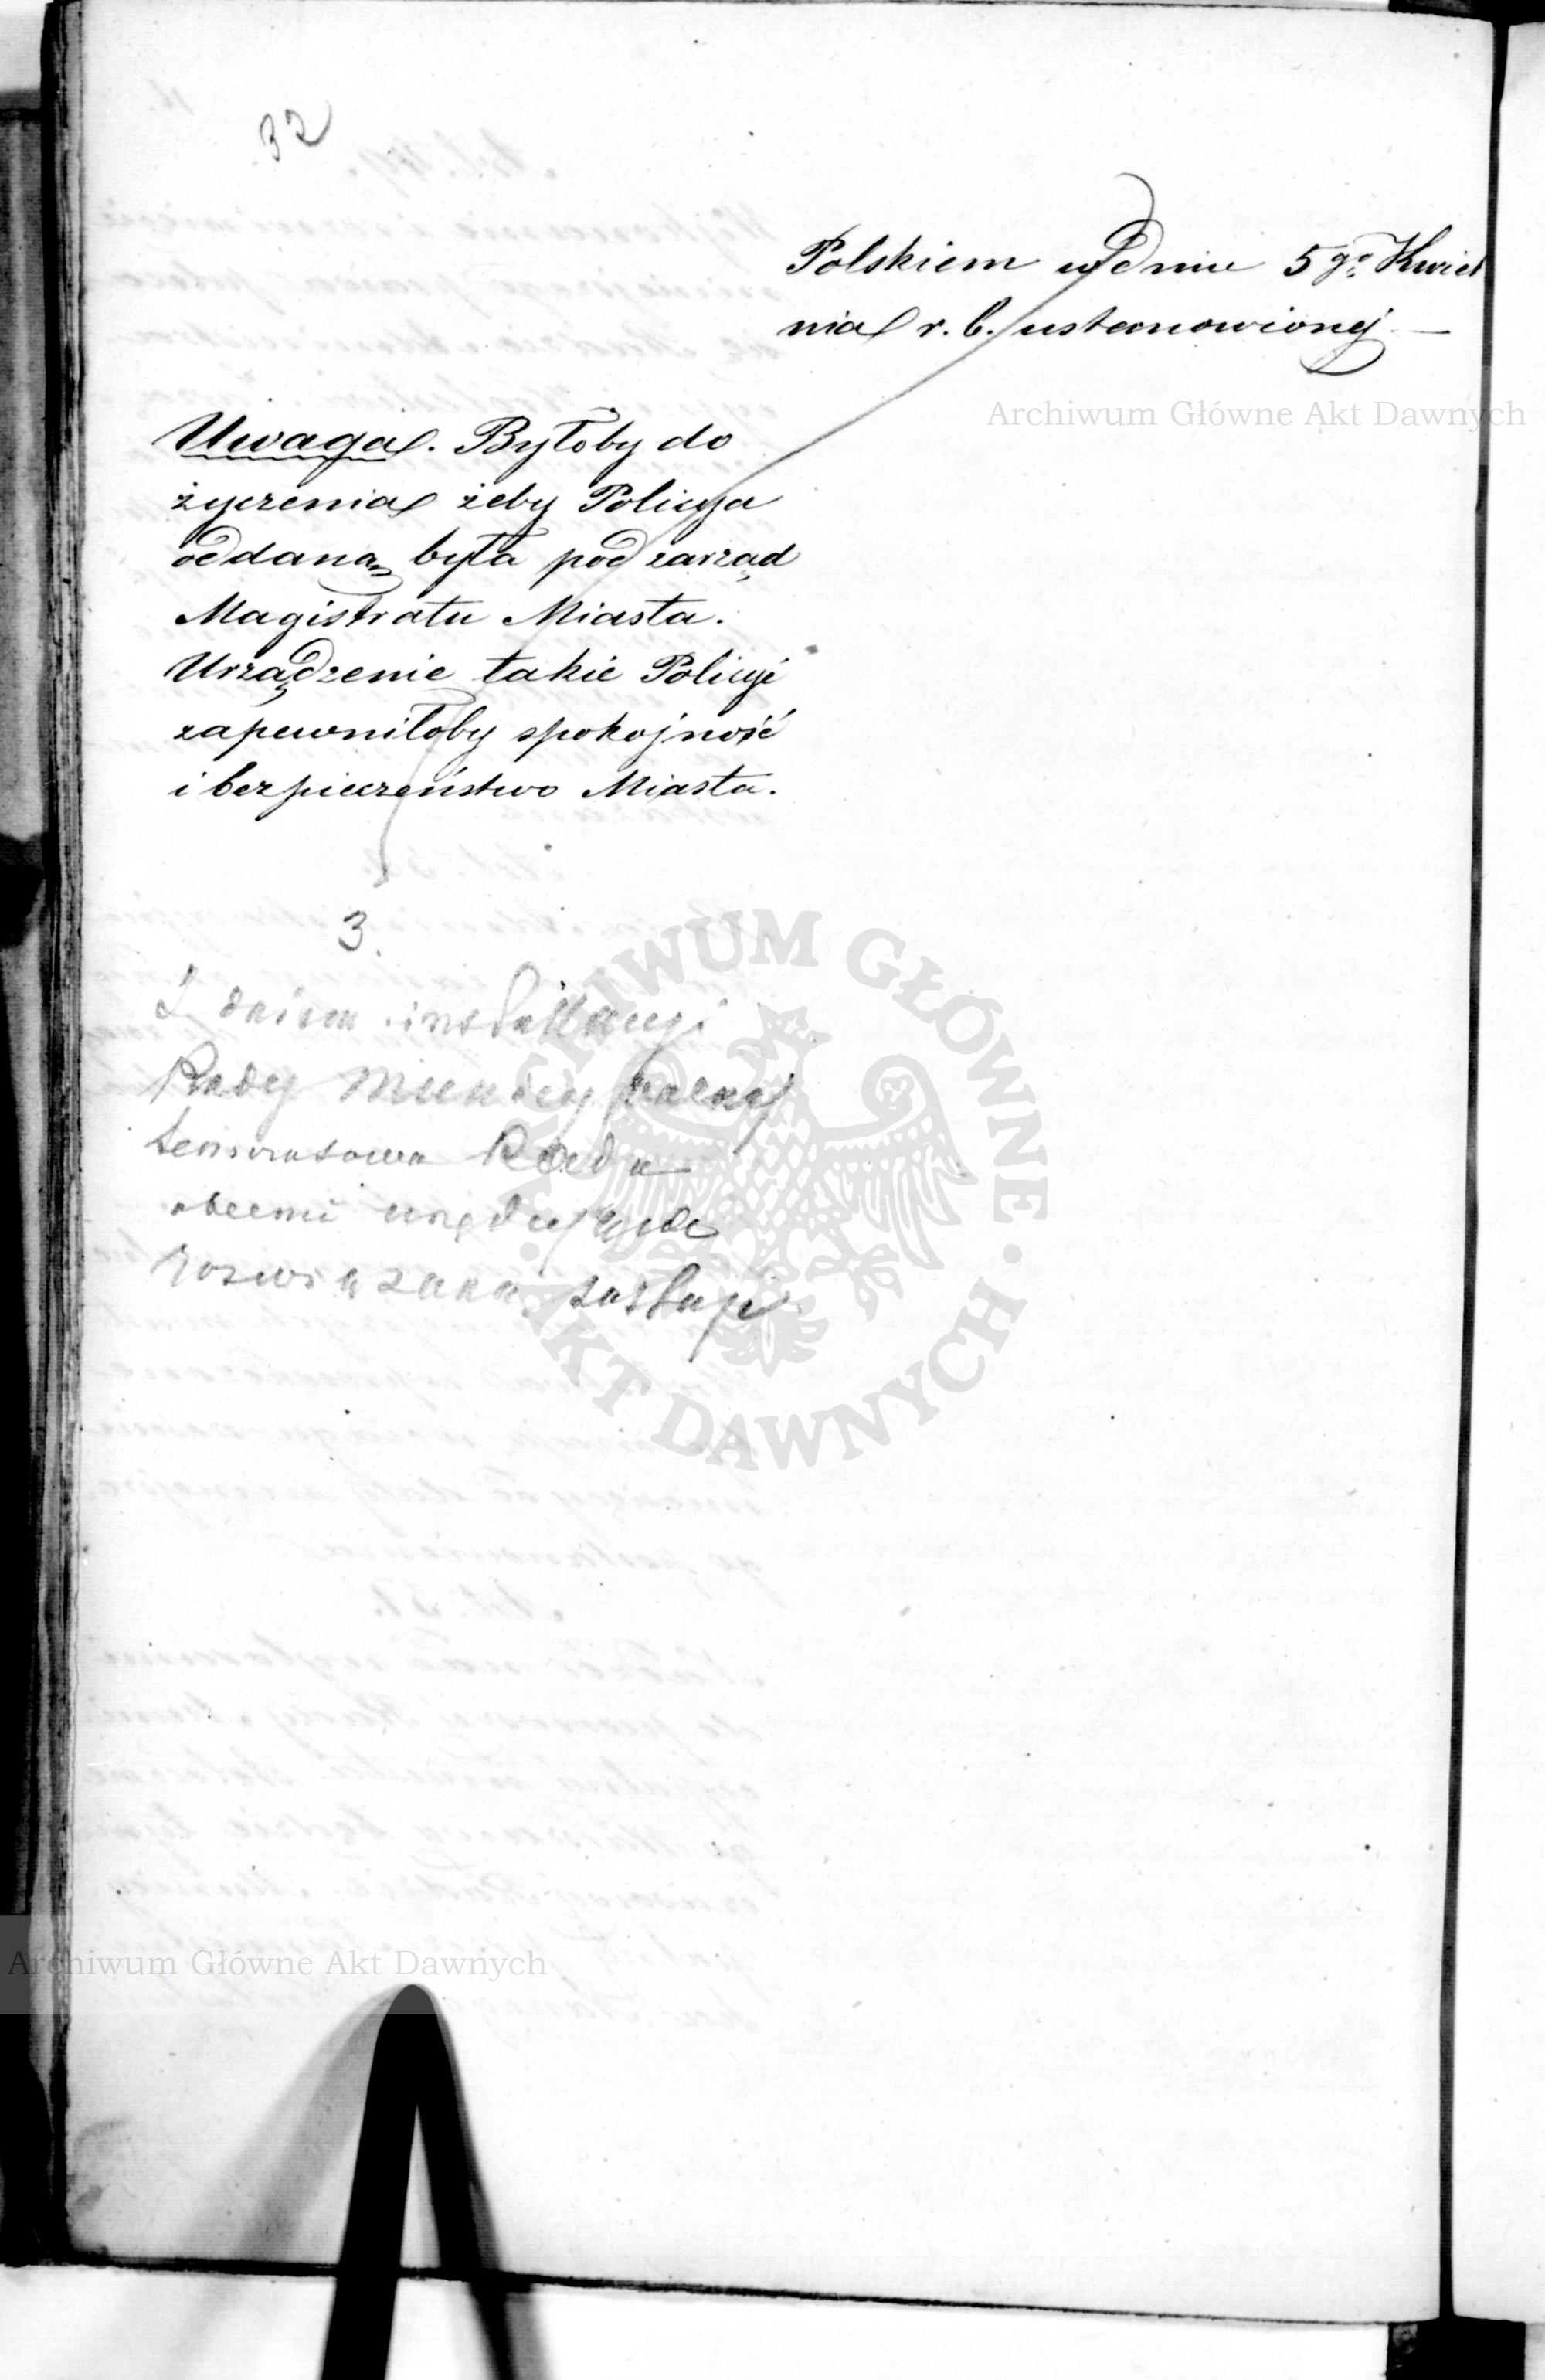 32
Polskiem w dniu 5go Kwiet
nia r. b. ustanowionej —
Uwaga. Byłoby do
życzenia żeby Policya
oddaną była pod zarząd
Magistratu Miasta.
Urządzenie takie Policyi
zapewniłoby spokojność
i bezpieczeństwo Miasta.
3.
Z dniem instalacyi
Rady Municypalnej
Rada
obecnie urzędująca
rozwiązaną zostaje
Archiwum Główne Akt Dawnych
ARCHIWUM GŁÓWNE · AKT DAWNYCH ·
Archiwum Główne Akt Dawnych